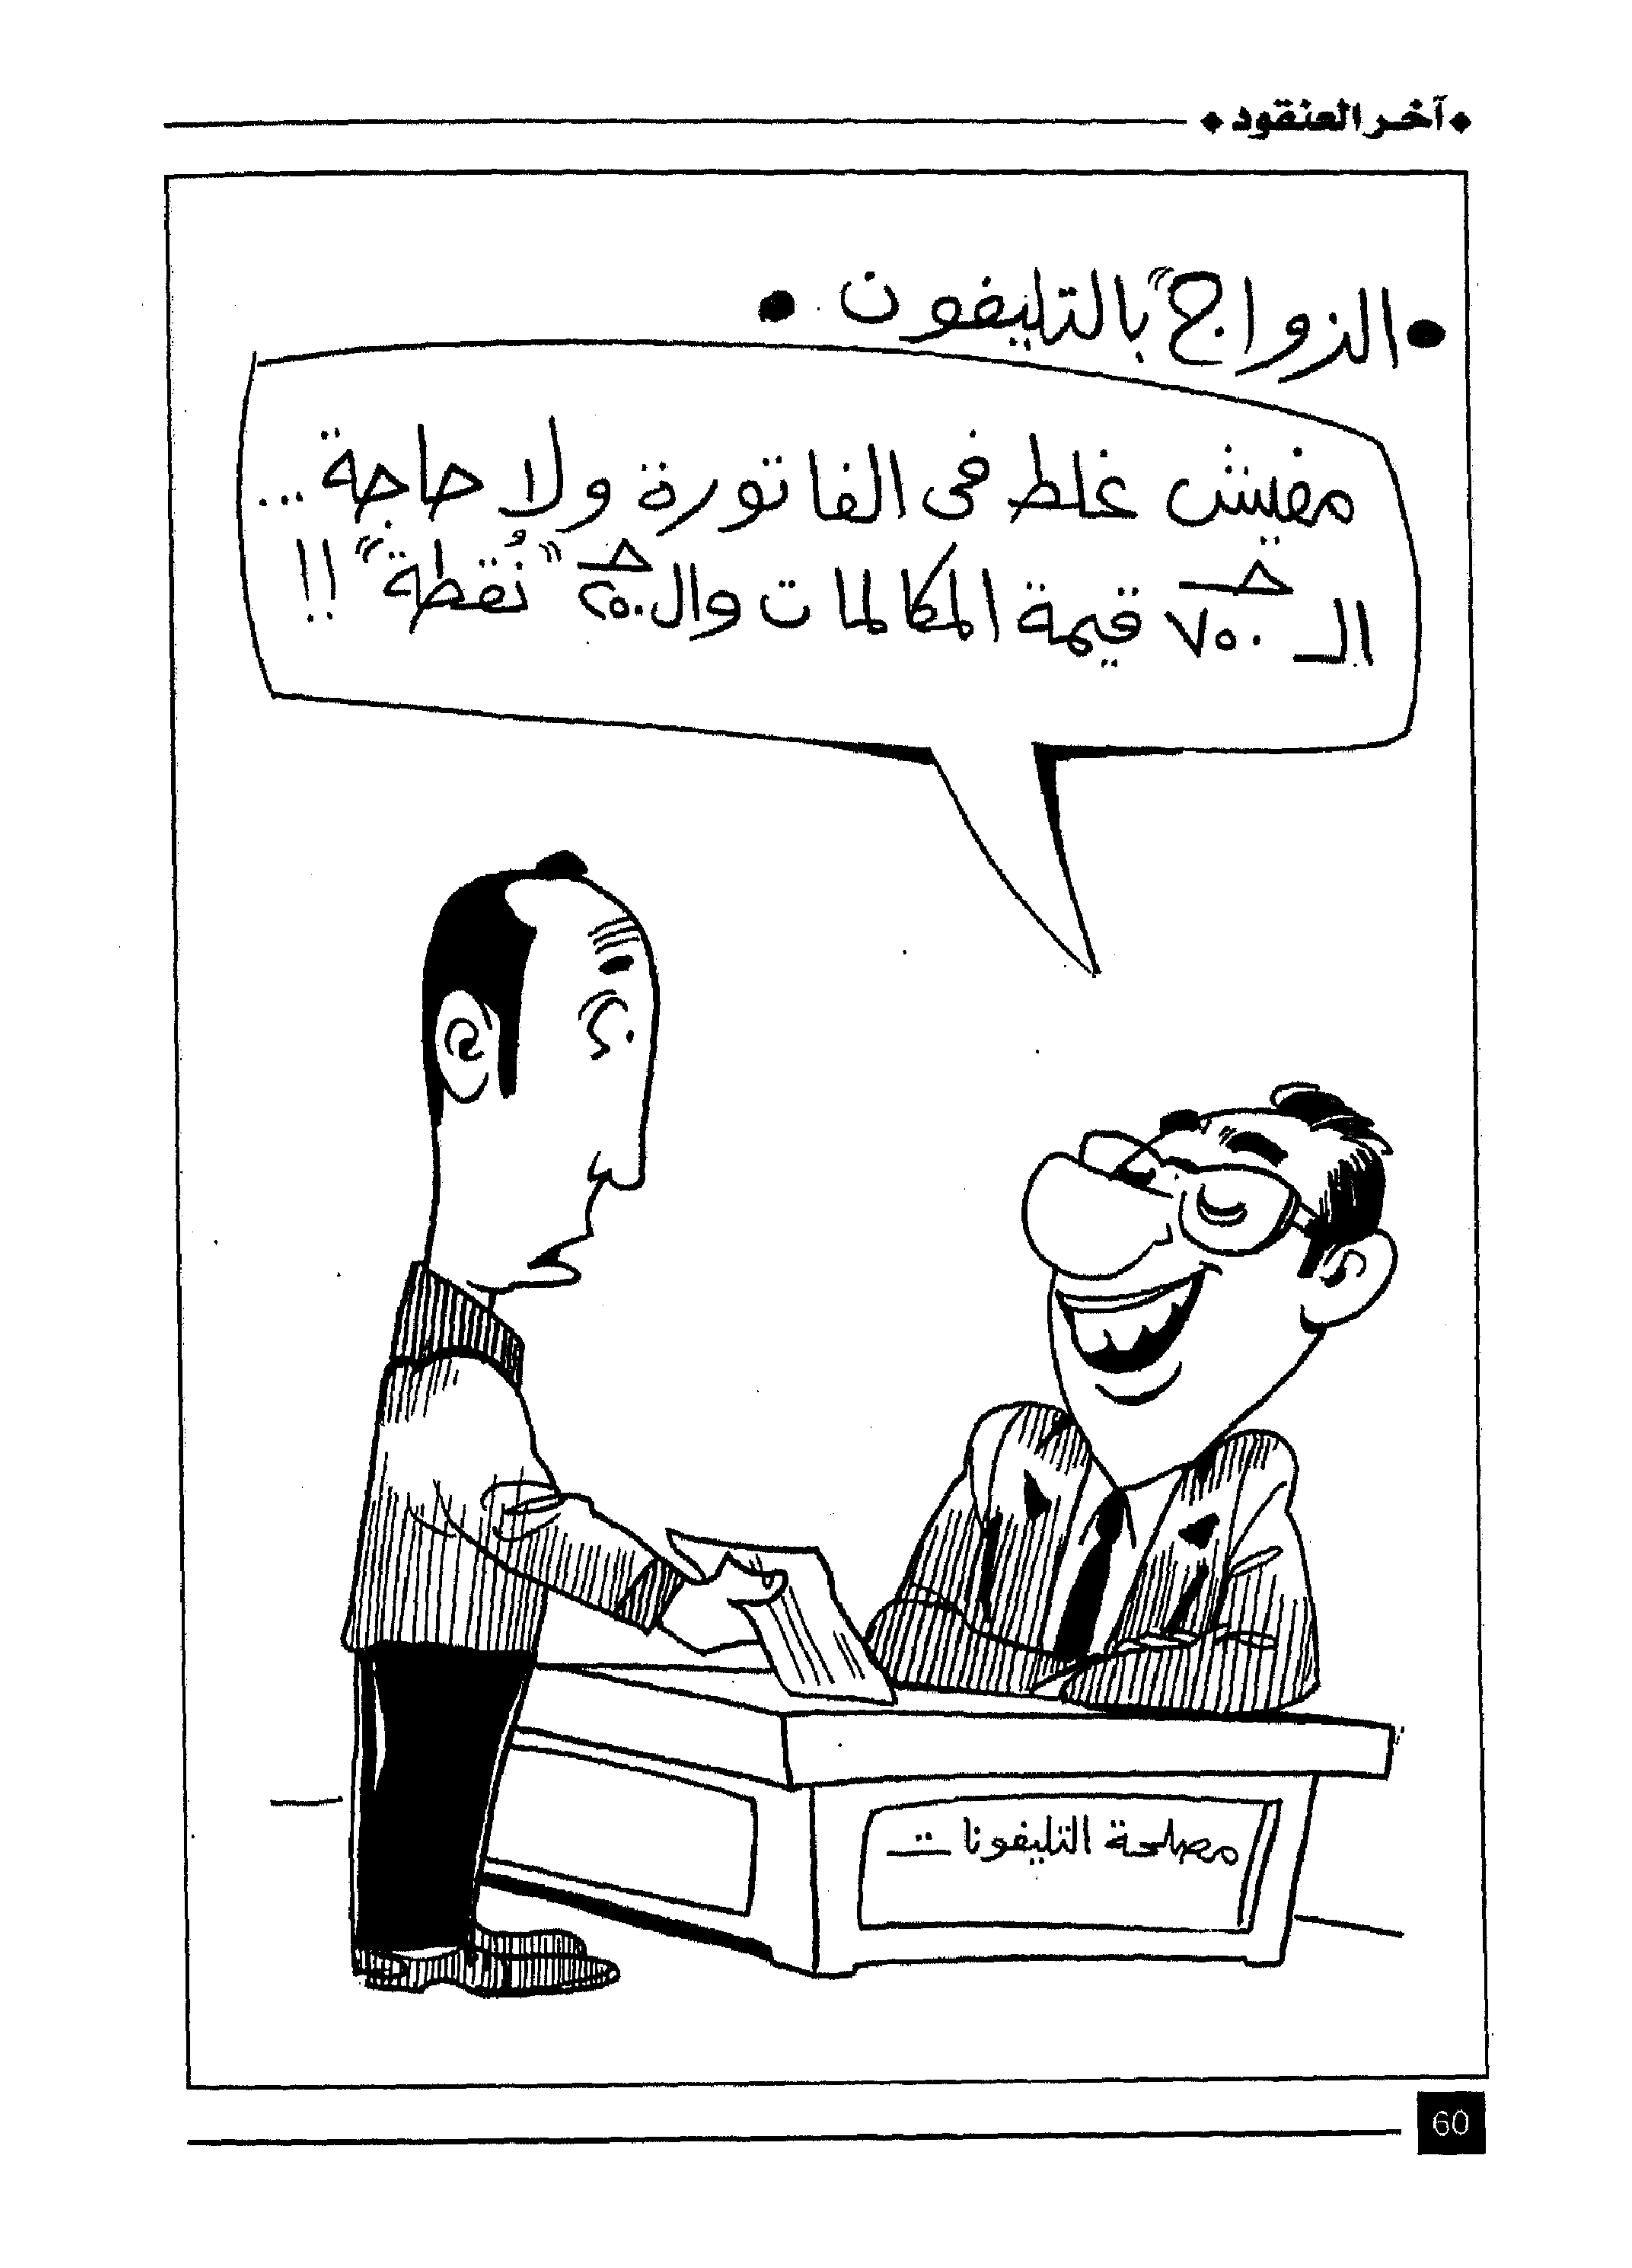 آخر العنقود
الزواج "بالتليفون
مفيش غلط فى الفاتورة ولا حاجة ...
الـ ٧٥٠ جـ قيمة المكالمات وال٢٥٠ جـ "نُقطة" !!
مصلحة التليفونات
60